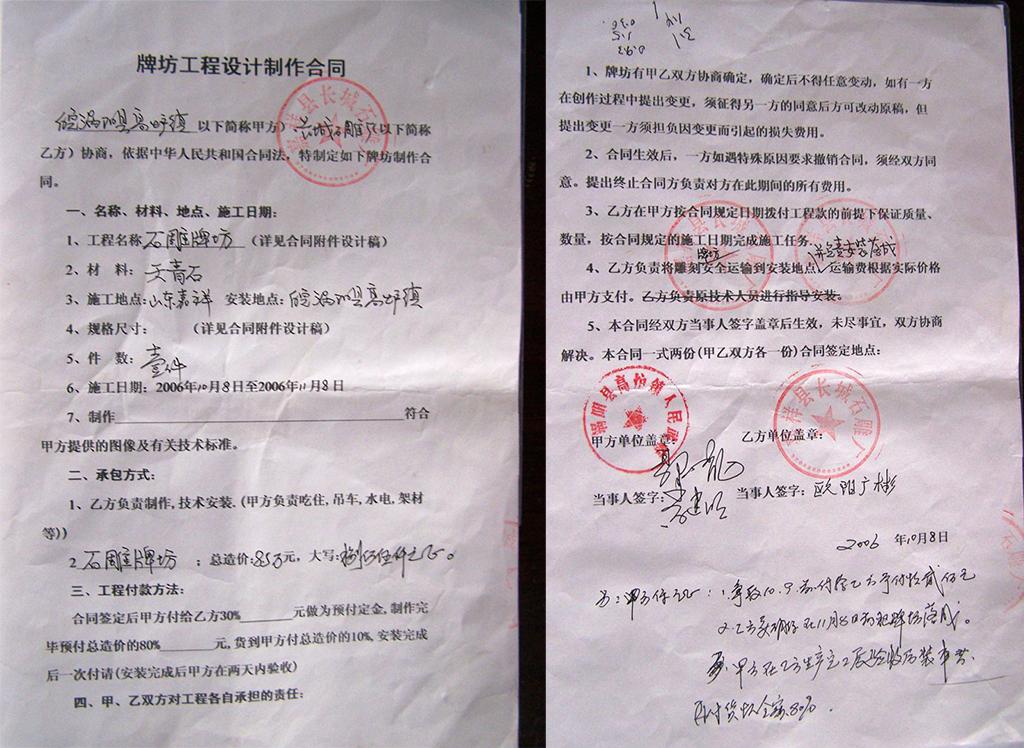 牌坊工程设计制作合同
皖涡阳县高炉镇 以下简称甲方）长城石雕厂（以下简称
乙方）协商，依据中华人民共和国合同法，特制定如下牌坊制作合
同。
一、名称、材料、地点、施工日期：
1、工程名称 石雕牌坊 （详见合同附件设计稿）
2、材 料： 天青石
3、施工地点：山东嘉祥 安装地点：皖涡阳县高炉镇
4、规格尺寸： （详见合同附件设计稿）
5、件 数：壹件
6、施工日期：2006年10月8日至2006年11月8日
7、制作 符合
甲方提供的图像及有关技术标准。
二、承包方式：
1、乙方负责制作,技术安装.(甲方负责吃住,吊车,水电,架材
等))
2 石雕牌坊 ；总造价:8.5万元，大写:捌万伍仟元正。
三、工程付款方法：
合同签定后甲方付给乙方30% 元做为预付定金,制作完
毕预付总造价的80% 元,货到甲方付总造价的10%,安装完成
后一次付请(安装完成后甲方在两天内验收)
四、甲、乙双方对工程各自承担的责任：
1、牌坊有甲乙双方协商确定，确定后不得任意变动，如有一方
在创作过程中提出变更，须征得另一方的同意后方可改动原稿，但
提出变更一方须担负因变更而引起的损失费用。
2、合同生效后，一方如遇特殊原因要求撤销合同，须经双方同
意。提出终止合同方负责对方在此期间的所有费用。
3、乙方在甲方按合同规定日期拨付工程款的前提下保证质量、
数量，按合同规定的施工日期完成施工任务。
牌坊 并负责安装落成
4、乙方负责将雕刻安全运输到安装地点，运输费根据实际价格
由甲方支付。乙方负责原技术人员进行指导安装。
5、本合同经双方当事人签字盖章后生效，未尽事宜，双方协商
解决。本合同一式两份(甲乙双方各一份)合同签定地点：
涡阳县高炉镇人民政府
嘉祥县长城石雕厂
甲方单位盖章： 乙方单位盖章：
当事人签字： 当事人签字：欧阳广彬
2006 年10月8日
1.争取10.9前付给乙方预付款贰万元
2.乙方要确保在11月8日前把牌坊落成。
3.甲方在乙方生产完工后验收后装车其
再付货款全额80%.